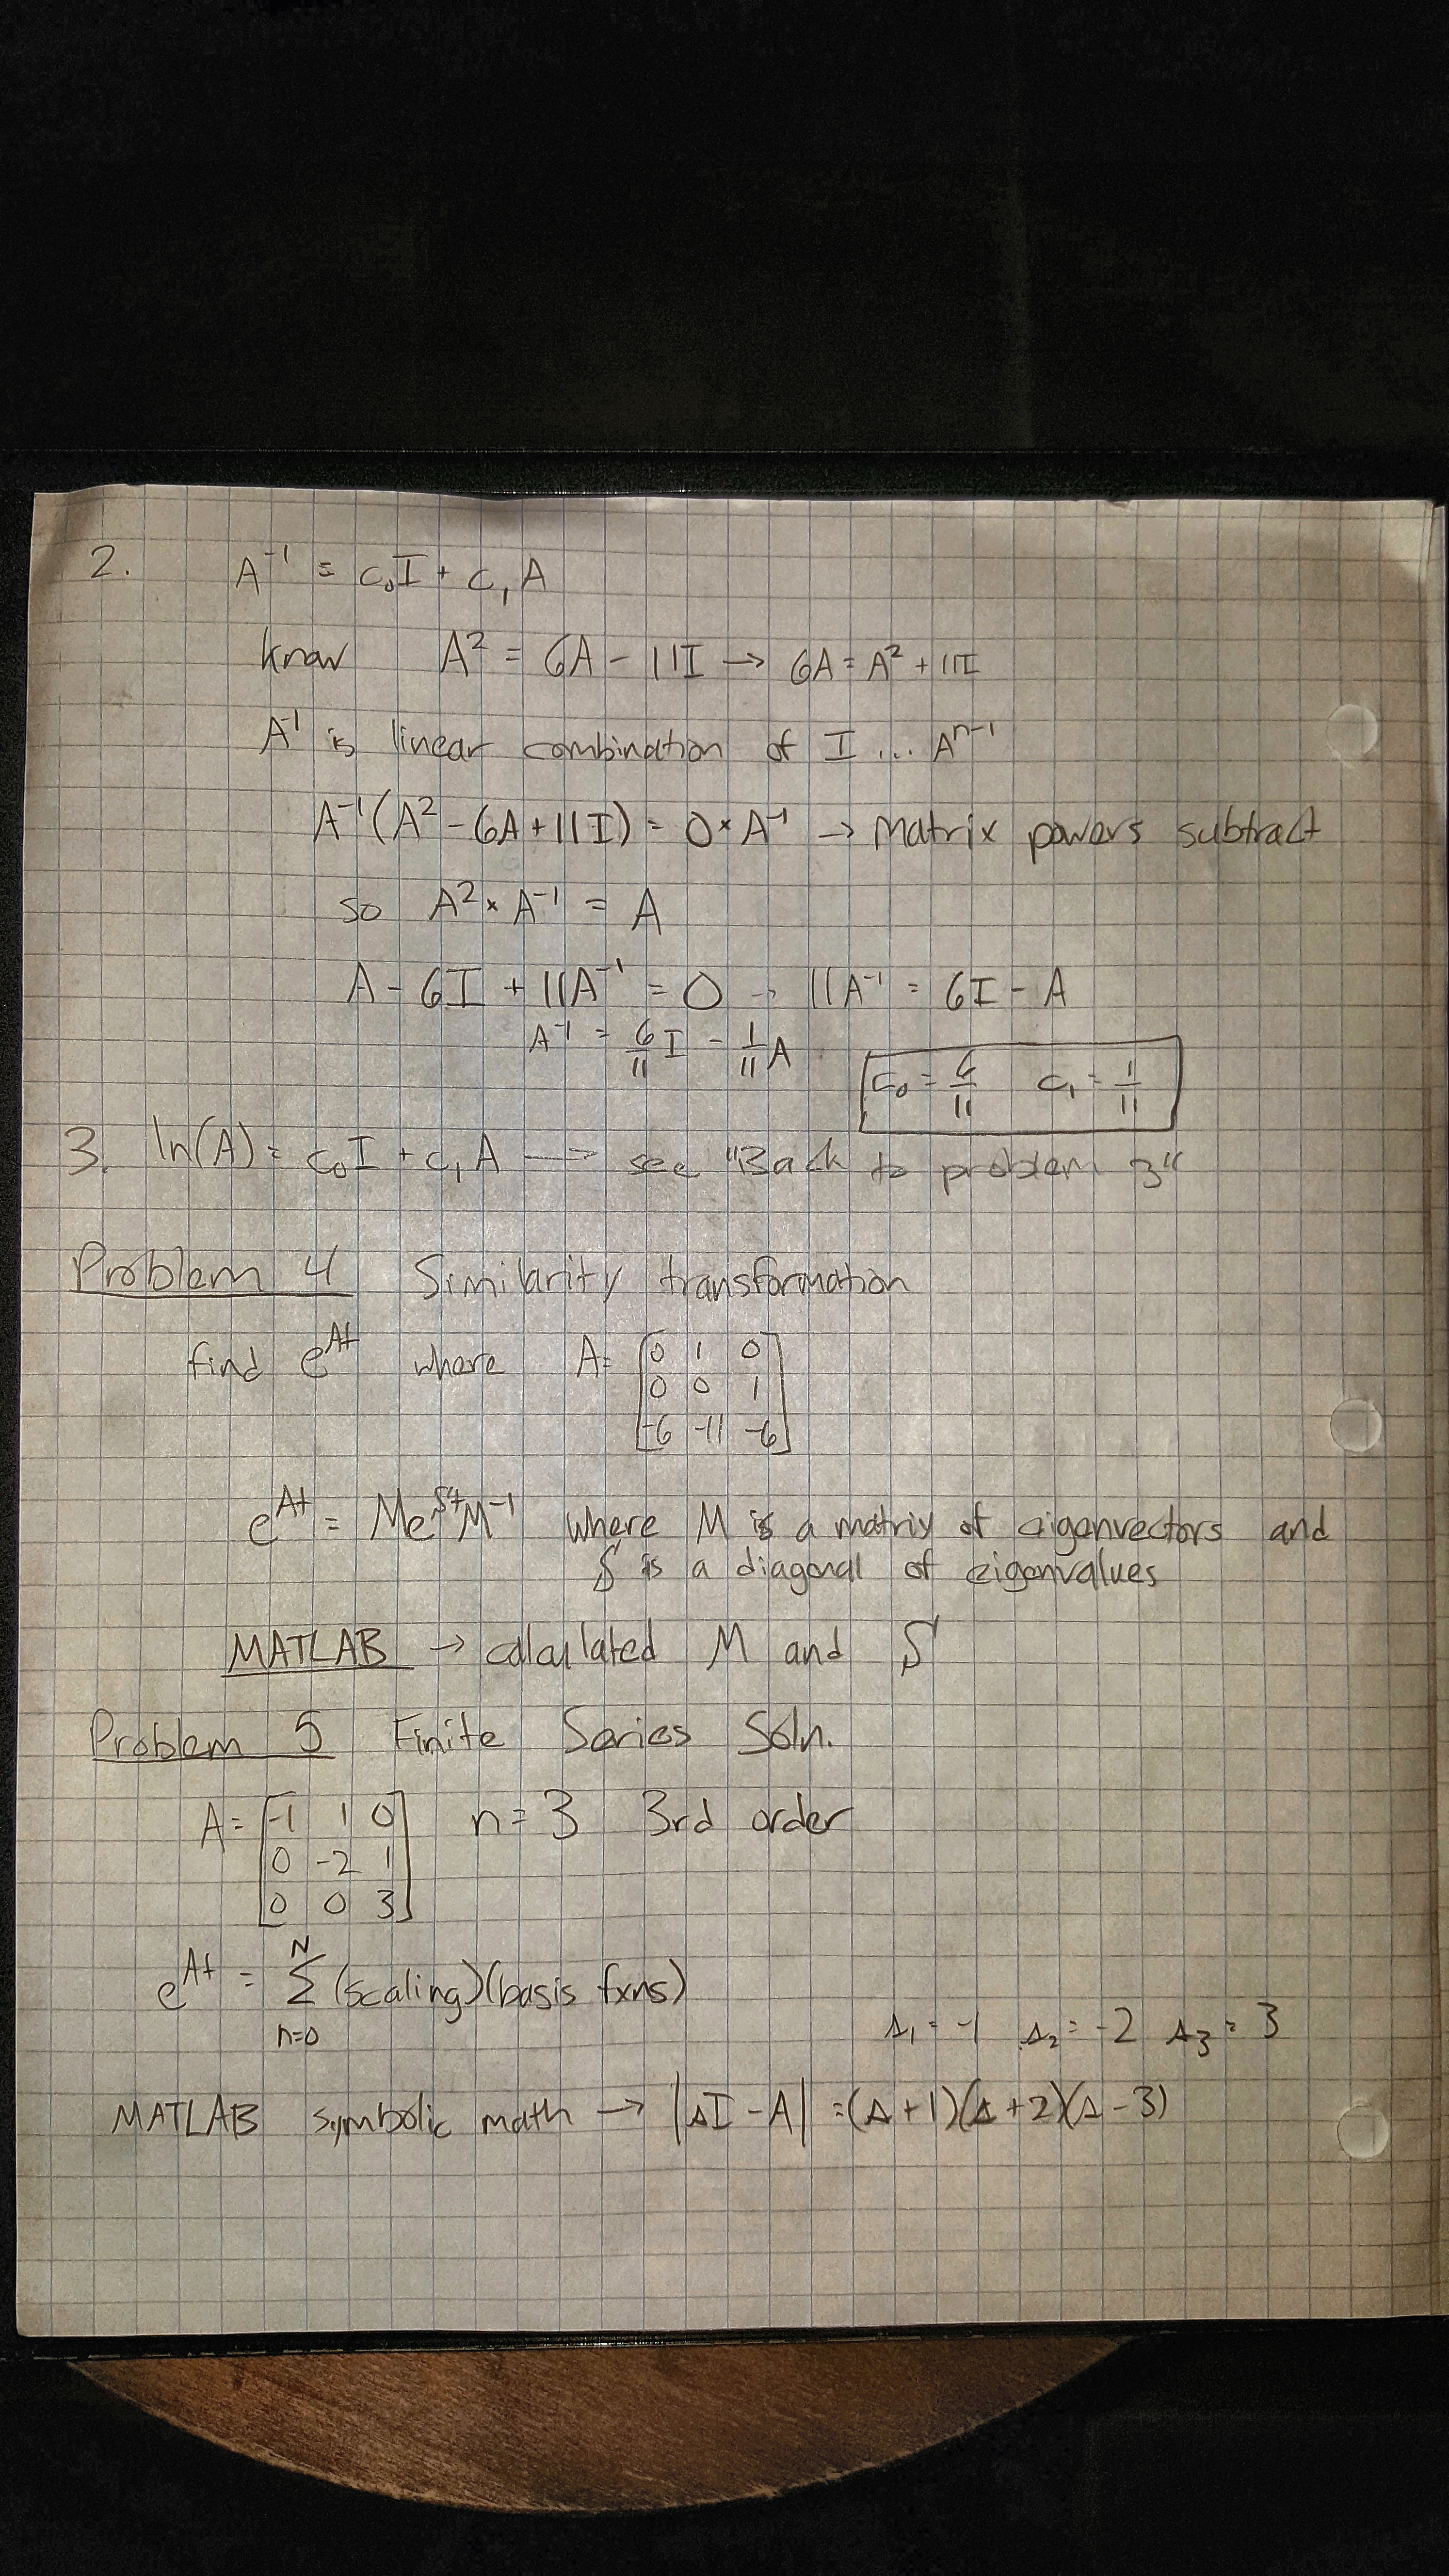 2. A⁻¹ = c₀I + c₁A
Know A² = 6A - 11I → 6A = A² + 11I
A⁻¹ is linear combination of I ... Aⁿ⁻¹
A⁻¹(A² - 6A + 11I) = 0 × A⁻¹ → Matrix powers subtract
so A² × A⁻¹ = A
A - 6I + 11A⁻¹ = 0 → 11A⁻¹ = 6I - A
A⁻¹ = 6/11 I - 1/11 A
c₀ = 6/11 c₁ = 1/11
3. ln(A) = c₀I + c₁A → see "Back to problem 3"
Problem 4 Similarity transformation
find eᴬᵗ where A = [0 1 0
0 0 1
-6 -11 -6]
eᴬᵗ = MeᔆᵗM⁻¹ where M is a matrix of eigenvectors and
S is a diagonal of eigenvalues
MATLAB → calculated M and S
Problem 5 Finite Series Soln.
A = [-1 1 0 n = 3 3rd order
0 -2 1
0 0 3]
eᴬᵗ = Σ (scaling)(basis fxns)
N
n=0
s₁ = -1 s₂ = -2 s₃ = 3
MATLAB symbolic math → |sI - A| = (s+1)(s+2)(s-3)